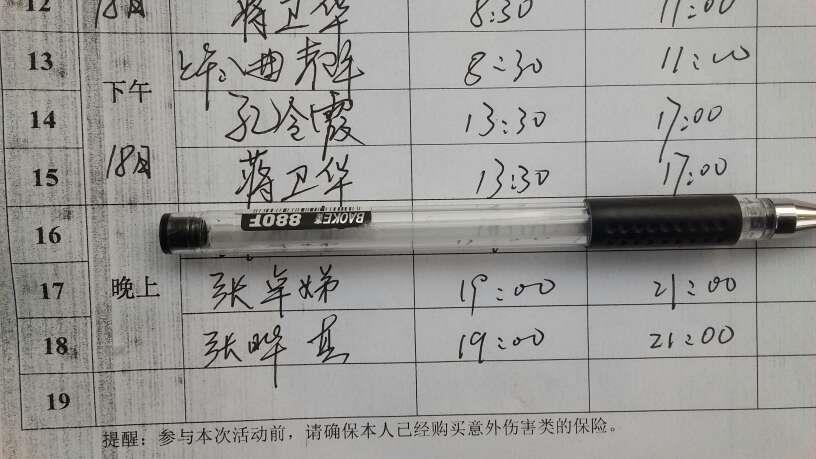 12 18日 蒋卫华 8:30 11:00
13 8:30 11:00
下午
14 孔令霞 13:30 17:00
15 18日 蒋卫华 13:30 17:00
16
BAOKE 880F
17 晚上 张卓娣 19:00 21:00
18 张晔 19:00 21:00
19
提醒：参与本次活动前，请确保本人已经购买意外伤害类的保险。